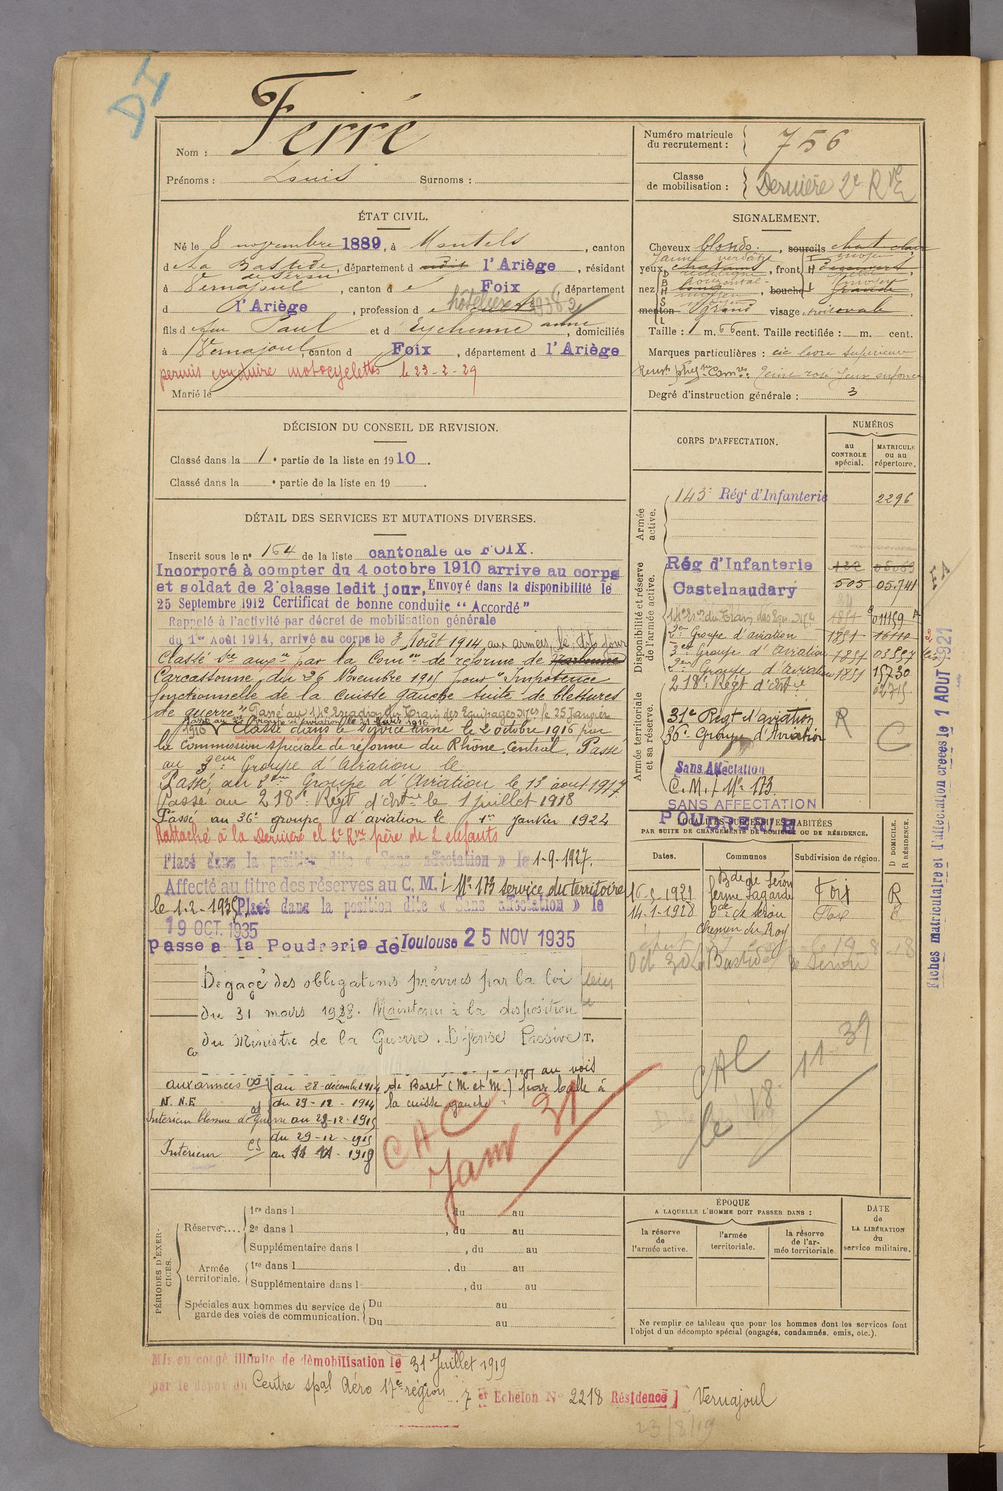 DI
Nom : Ferré
Prénoms : Louis Surnoms :
Numéro matricule du recrutement : 756
Classe de mobilisation : Dernière 2e Rve
ÉTAT CIVIL.
Né le 8 novembre 1889, à Montels, canton
de La Bastide de Sérou, département d l'Ariège, résidant
à Vernajoul, canton d e Foix, département
d l'Ariège, profession d
fils de Paul et d Eychenne anne, domiciliés
à Vernajoul, canton d Foix, département d l'Ariège
permis conduire motocyclettes le 23-2-29
Marié le
SIGNALEMENT.
Cheveux blonds, sourcils
yeux, front
nez, bouche
menton, visage ovale
Taille : 1 m. 66 cent. Taille rectifiée : m. cent.
Marques particulières : cic levre superieure
Degré d'instruction générale : 3
DÉCISION DU CONSEIL DE REVISION.
Classé dans la 1e partie de la liste en 1910.
Classé dans la e partie de la liste en 19
DÉTAIL DES SERVICES ET MUTATIONS DIVERSES.
Inscrit sous le n° 164 de la liste cantonale de FOIX.
Incorporé à compter du 4 octobre 1910 arrive au corps
et soldat de 2e classe ledit jour, Envoyé dans la disponibilité le
25 Septembre 1912 Certificat de bonne conduite "Accordé"
Rappelé à l'activité par décret de mobilisation générale
du 1er Août 1914, arrivé au corps le 3 Août 1914 aux armées le dit jour
Classé Sce auxre par la Comon de réforme de Narbonne
Carcassonne, du 26 Novembre 1915 pour "Impotence
fonctionnelle de la cuisse gauche suite de blessures
de guerre" Passé au 14e Escadron du Train des Equipages Mres le 25 Janvier
1916 Classé dans le Service armé le 2 octobre 1916 par
la Commission spéciale de réforme du Rhone Central. Passé
au 3eme Groupe d'Aviation le
Passé au 2eme Groupe d'Aviation le 13 aout 1917
Passé au 218e Régt d'Artrie le 1 juillet 1918
Passé au 36e groupe d'Aviation le 1er janvier 1924
Rattaché à la dernière cl 2e Rve père de 2 enfants
Placé dans la position dite « Sans affectation » le 1-9-1927.
Affecté au titre des réserves au C. M. I N° 173 service du territoire
le 1-2-1935 Placé dans la position dite « Sans affectation » le
19 OCT. 1935
Passé à la Poudrerie de Toulouse 25 NOV 1935
Dégagé des obligations prévues par la loi
du 31 mars 1928. Maintenu à la disposition
du Ministre de la Guerre. Défense Passive T.
aux armées au 28-décembre 1914
N. N. E du 29-12-1914
Intérieur blessure de guerre au 28-12-1915
Intérieur du 29-12-1915
de Baret (M et M.) par balle à
la cuisse gauche
CAC
Janv 31
CORPS D'AFFECTATION.
NUMÉROS
au CONTROLE spécial.
MATRICULE ou au répertoire.
Armée active.
143e Régt d'Infanterie 2296
Disponibilité et réserve de l'armée active.
Rég d'Infanterie
Castelnaudary 505 05741
2e Groupe d'aviation
3eme Groupe d'Aviation
2eme Groupe d'Aviation 15730
218e Régt d'Artrie
Armée territoriale et sa réserve.
31e Regt d'aviation R
36e Groupe d'Aviation C
Sans Affectation
C. M. I N° 173
SANS AFFECTATION
POUDRERIE
LOCALITÉS SUCCESSIVES HABITÉES
PAR SUITE DE CHANGEMENTS DE DOMICILE OU DE RÉSIDENCE.
Dates. Communes Subdivision de région. D DOMICILE. R RÉSIDENCE.
16-5-1921 Bde de Sérou ferme Lagarde Foix R
14-1-1928 Bde de Sérou Foix
Chemin du Roy
Oct 30 La Bastide de Serou
CAC
le 18. 11. 39
Fiches matriculaire et d'affectation créées le 1 AOUT 1921
PÉRIODES D'EXERCICES.
Réserve.... 1re dans l du au
2e dans l, du au
Supplémentaire dans l, du au
Armée territoriale. 1re dans l, du au
Supplémentaire dans l, du au
Spéciales aux hommes du service de garde des voies de communication. Du au
Du au
ÉPOQUE
A LAQUELLE L'HOMME DOIT PASSER DANS :
la réserve de l'armée active. l'armée territoriale. la réserve de l'armée territoriale.
DATE de LA LIBÉRATION du service militaire.
Ne remplir ce tableau que pour les hommes dont les services font
l'objet d'un décompte spécial (engagés, condamnés, omis, etc.).
Mis en congé illimité de démobilisation le 31 Juillet 1919
par le dépôt du Centre spal Aéro 17e région 7 er Echelon N° 2218 Résidence Vernajoul
23/8/19